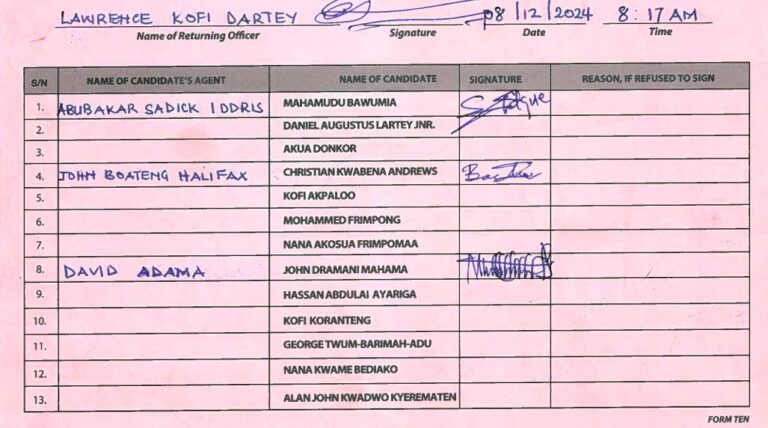 LAWRENCE KOFI DARTEY 08/12/2024 8:17 AM
Name of Returning Officer Signature Date Time
S/N NAME OF CANDIDATE'S AGENT NAME OF CANDIDATE SIGNATURE REASON, IF REFUSED TO SIGN
1. ABUBAKAR SADICK IDDRIS MAHAMUDU BAWUMIA
2. DANIEL AUGUSTUS LARTEY JNR.
3. AKUA DONKOR
4. JOHN BOATENG HALIFAX CHRISTIAN KWABENA ANDREWS
5. KOFI AKPALOO
6. MOHAMMED FRIMPONG
7. NANA AKOSUA FRIMPOMAA
8. DAVID ADAMA JOHN DRAMANI MAHAMA
9. HASSAN ABDULAI AYARIGA
10. KOFI KORANTENG
11. GEORGE TWUM-BARIMAH-ADU
12. NANA KWAME BEDIAKO
13. ALAN JOHN KWADWO KYEREMATEN
FORM TEN